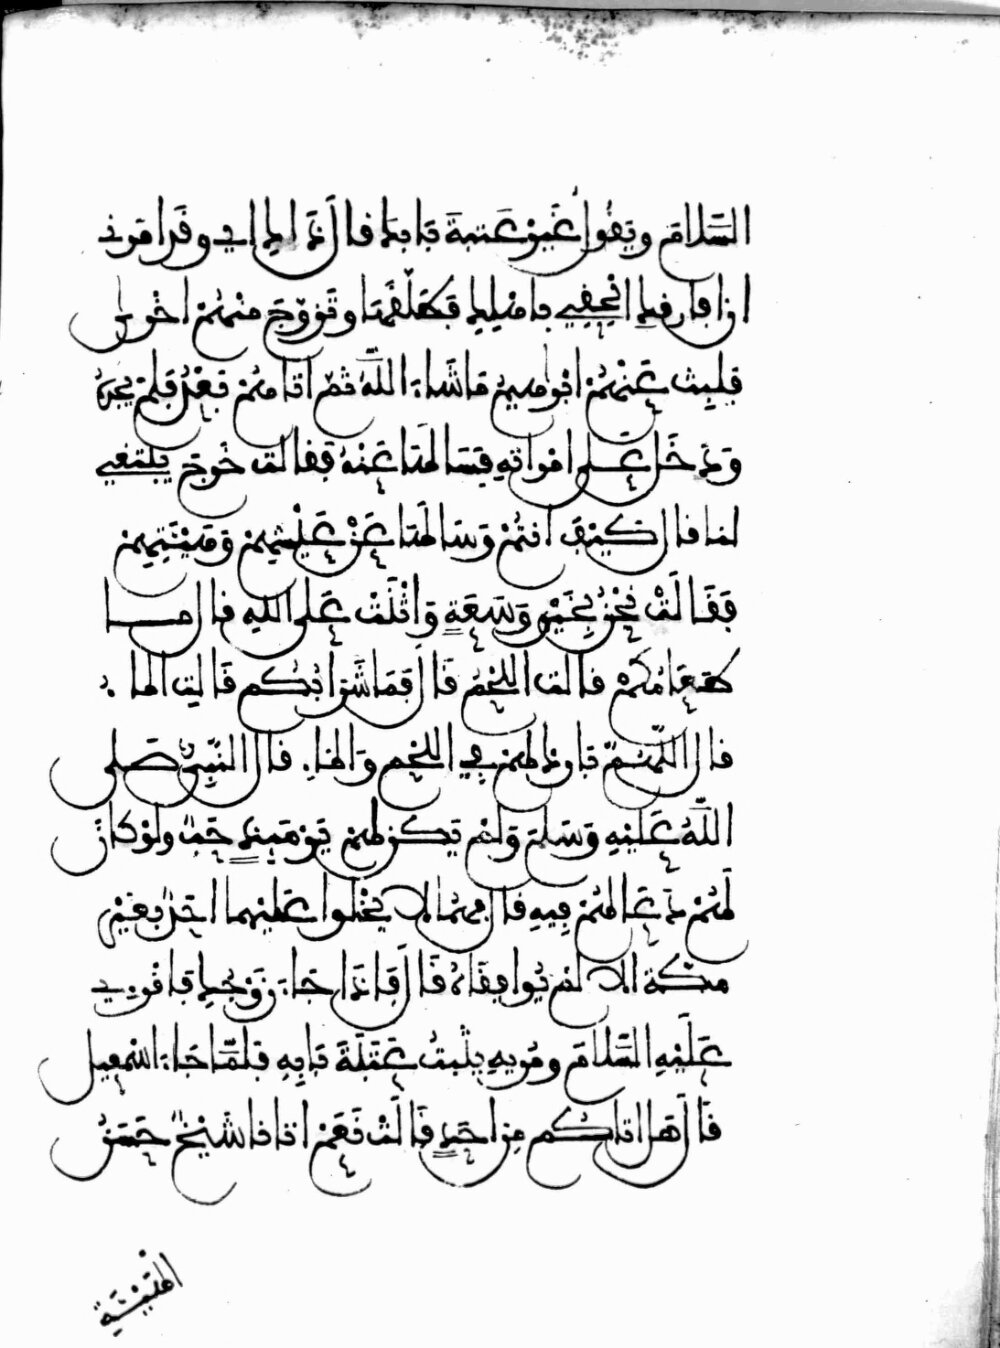 السَّلَامَ ويَقُولُ غَيِّرْ عَتبةَ بَابِكَ قال ذَاكِ ابي وقَد امَرني
ان افارقكِ الْحَقِي بِاهْلِكِ فَطَلَّقَهَا وتَزَوَّجَ مِنْهُمْ اخْرى
فلبِثَ عَنْهُمُ ابْراهيمُ مَا شَاءَ اللَّهُ ثُمَّ اتَاهُمْ بَعْدُ فلمْ يجدْهُ
وَدَخَلَ عَلى امْرَاتِهِ فسَالَهَا عَنْهُ فقالت خَرجَ يَبْتَغي
لنا قال كَيْفَ انتُمْ وَسَالهَا عَنْ عَيْشِهِمْ وَهَيْئَتِهِمْ
فَقَالَتْ نَحْنُ بِخَيْرٍ وَسَعَةٍ وَاثْنَتْ عَلى اللهِ قال مَا
طَعَامُكُمْ قالت اللَّحْمُ قَالَ فَمَا شَرَابُكُم قَالتِ الماء
قال اللَّهُمَّ بَارِكْ لهمْ فِي اللحْمِ وَالماءِ. قال النَّبيُّ صَلى
اللَّهُ عَلَيْهِ وَسَلمَ وَلَمْ يَكُنْ لهمْ يَوْمَئِذٍ حَبٌّ ولوْ كَانَ
لَهُمْ دَعَا لهُمْ فِيهِ قال فهُمَا لا يَخْلُوا عَليْهِمَا احَدٌ بِغَيْرِ
مَكّة الا لمْ يُوافِقَاهُ قَالَ فَاذَا جَاءَ زَوْجُكِ فَاقْرءي
عَلَيْهِ السَّلَامَ ومُرِيهِ يثْبِتُ عَتَبَةَ بَابِهِ فلمَّا جَاءَ اسْمعِيلُ
قَالَ هَل اتَاكُم مِن احَدٍ قَالَتْ نَعَمْ اتَانَا شَيْخٌ حَسَنُ
الْهَيْئَةِ